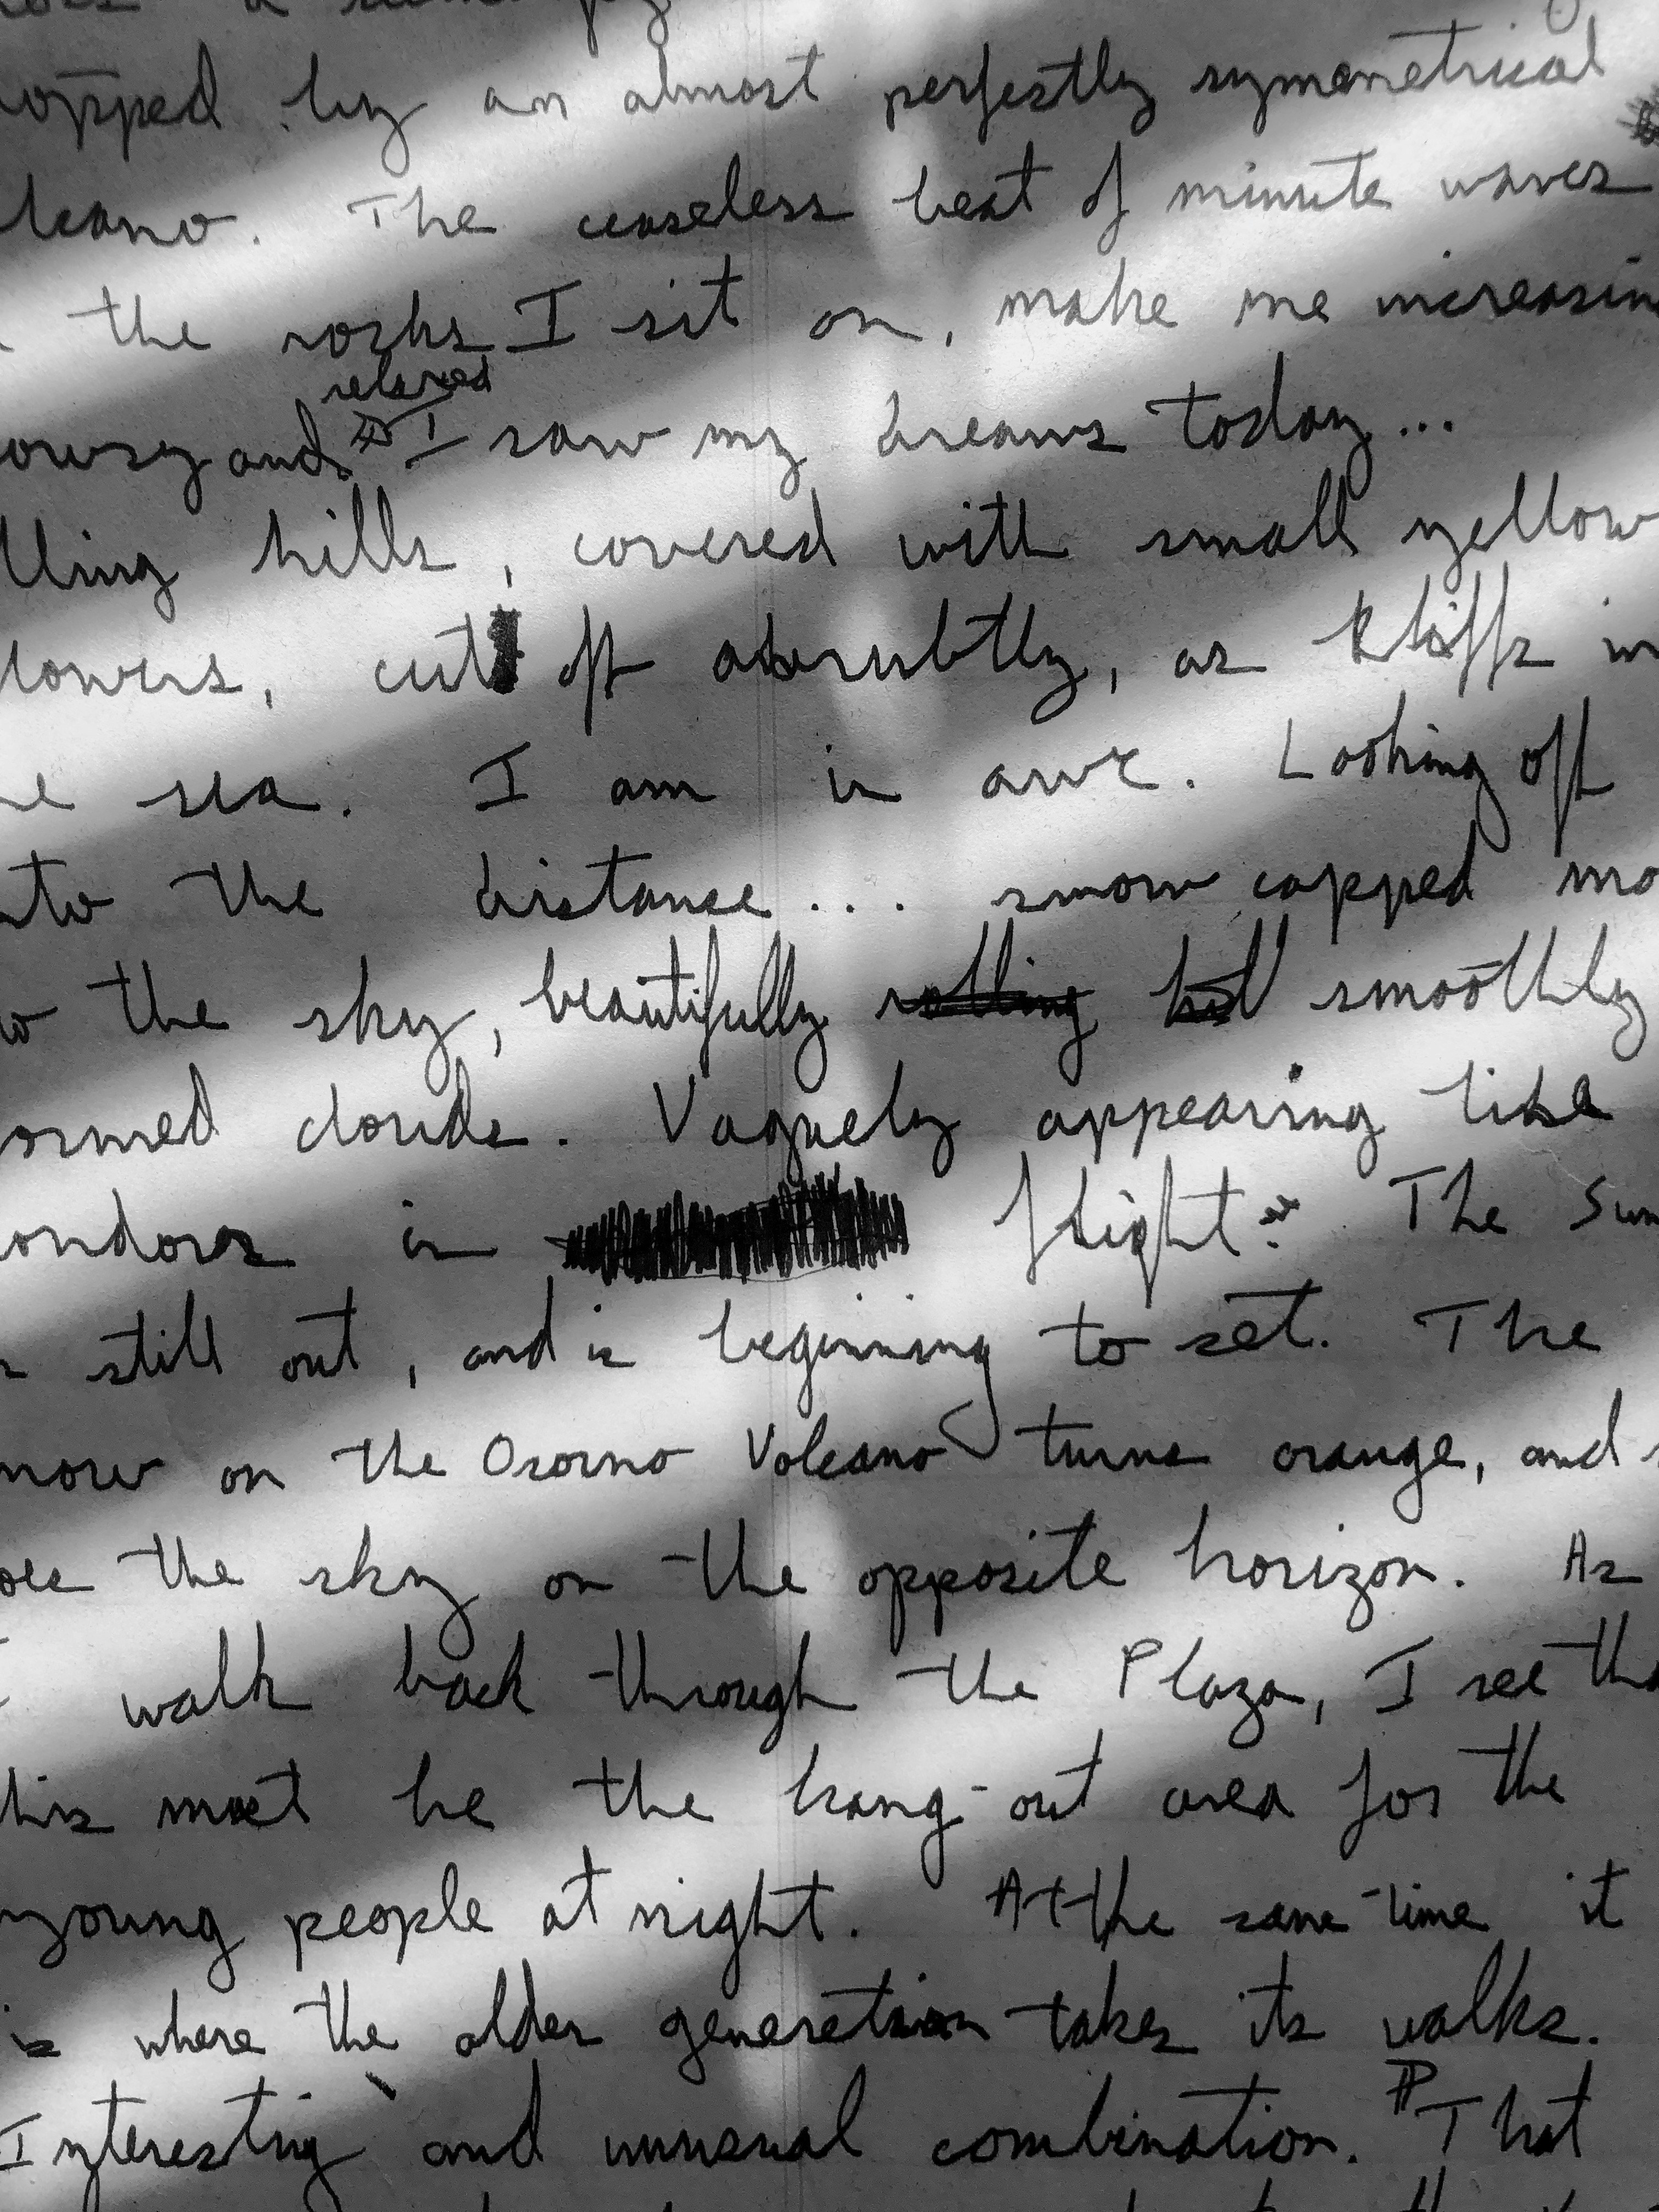 opped by an almost perfectly symmetrical
lcano. The ceaseless beat of minute waves
the rocks I sit on, make me increasin
relaxed
owsy and I saw my dreams today...
lling hills, covered with small yellow
lowers, cut off abrubtly, as kliffs in
e sea. I am in awe. Looking off
nto the distance... snow capped mo
o the sky, beautifully rolling hill smoothly
ormed clouds. Vaguely appearing like
ondors in flight. The Sun
still out, and is beginning to set. The
now on the Osorno Volcano turns orange, and
oes the sky on the opposite horizon. As
I walk back through the Plaza, I see tha
this must be the hang-out area for the
young people at night. At the same time it
is where the older generation takes its walks.
Interesting and unusual combination. That